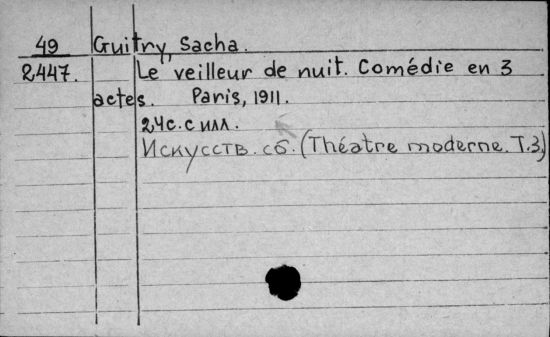 49 Guitry, Sacha.
2447. Le veilleur de nuit. Comédie en 3
actes. Paris, 1911.
24с. с илл.
Искусств. сб. (Théatre moderne. T.3)